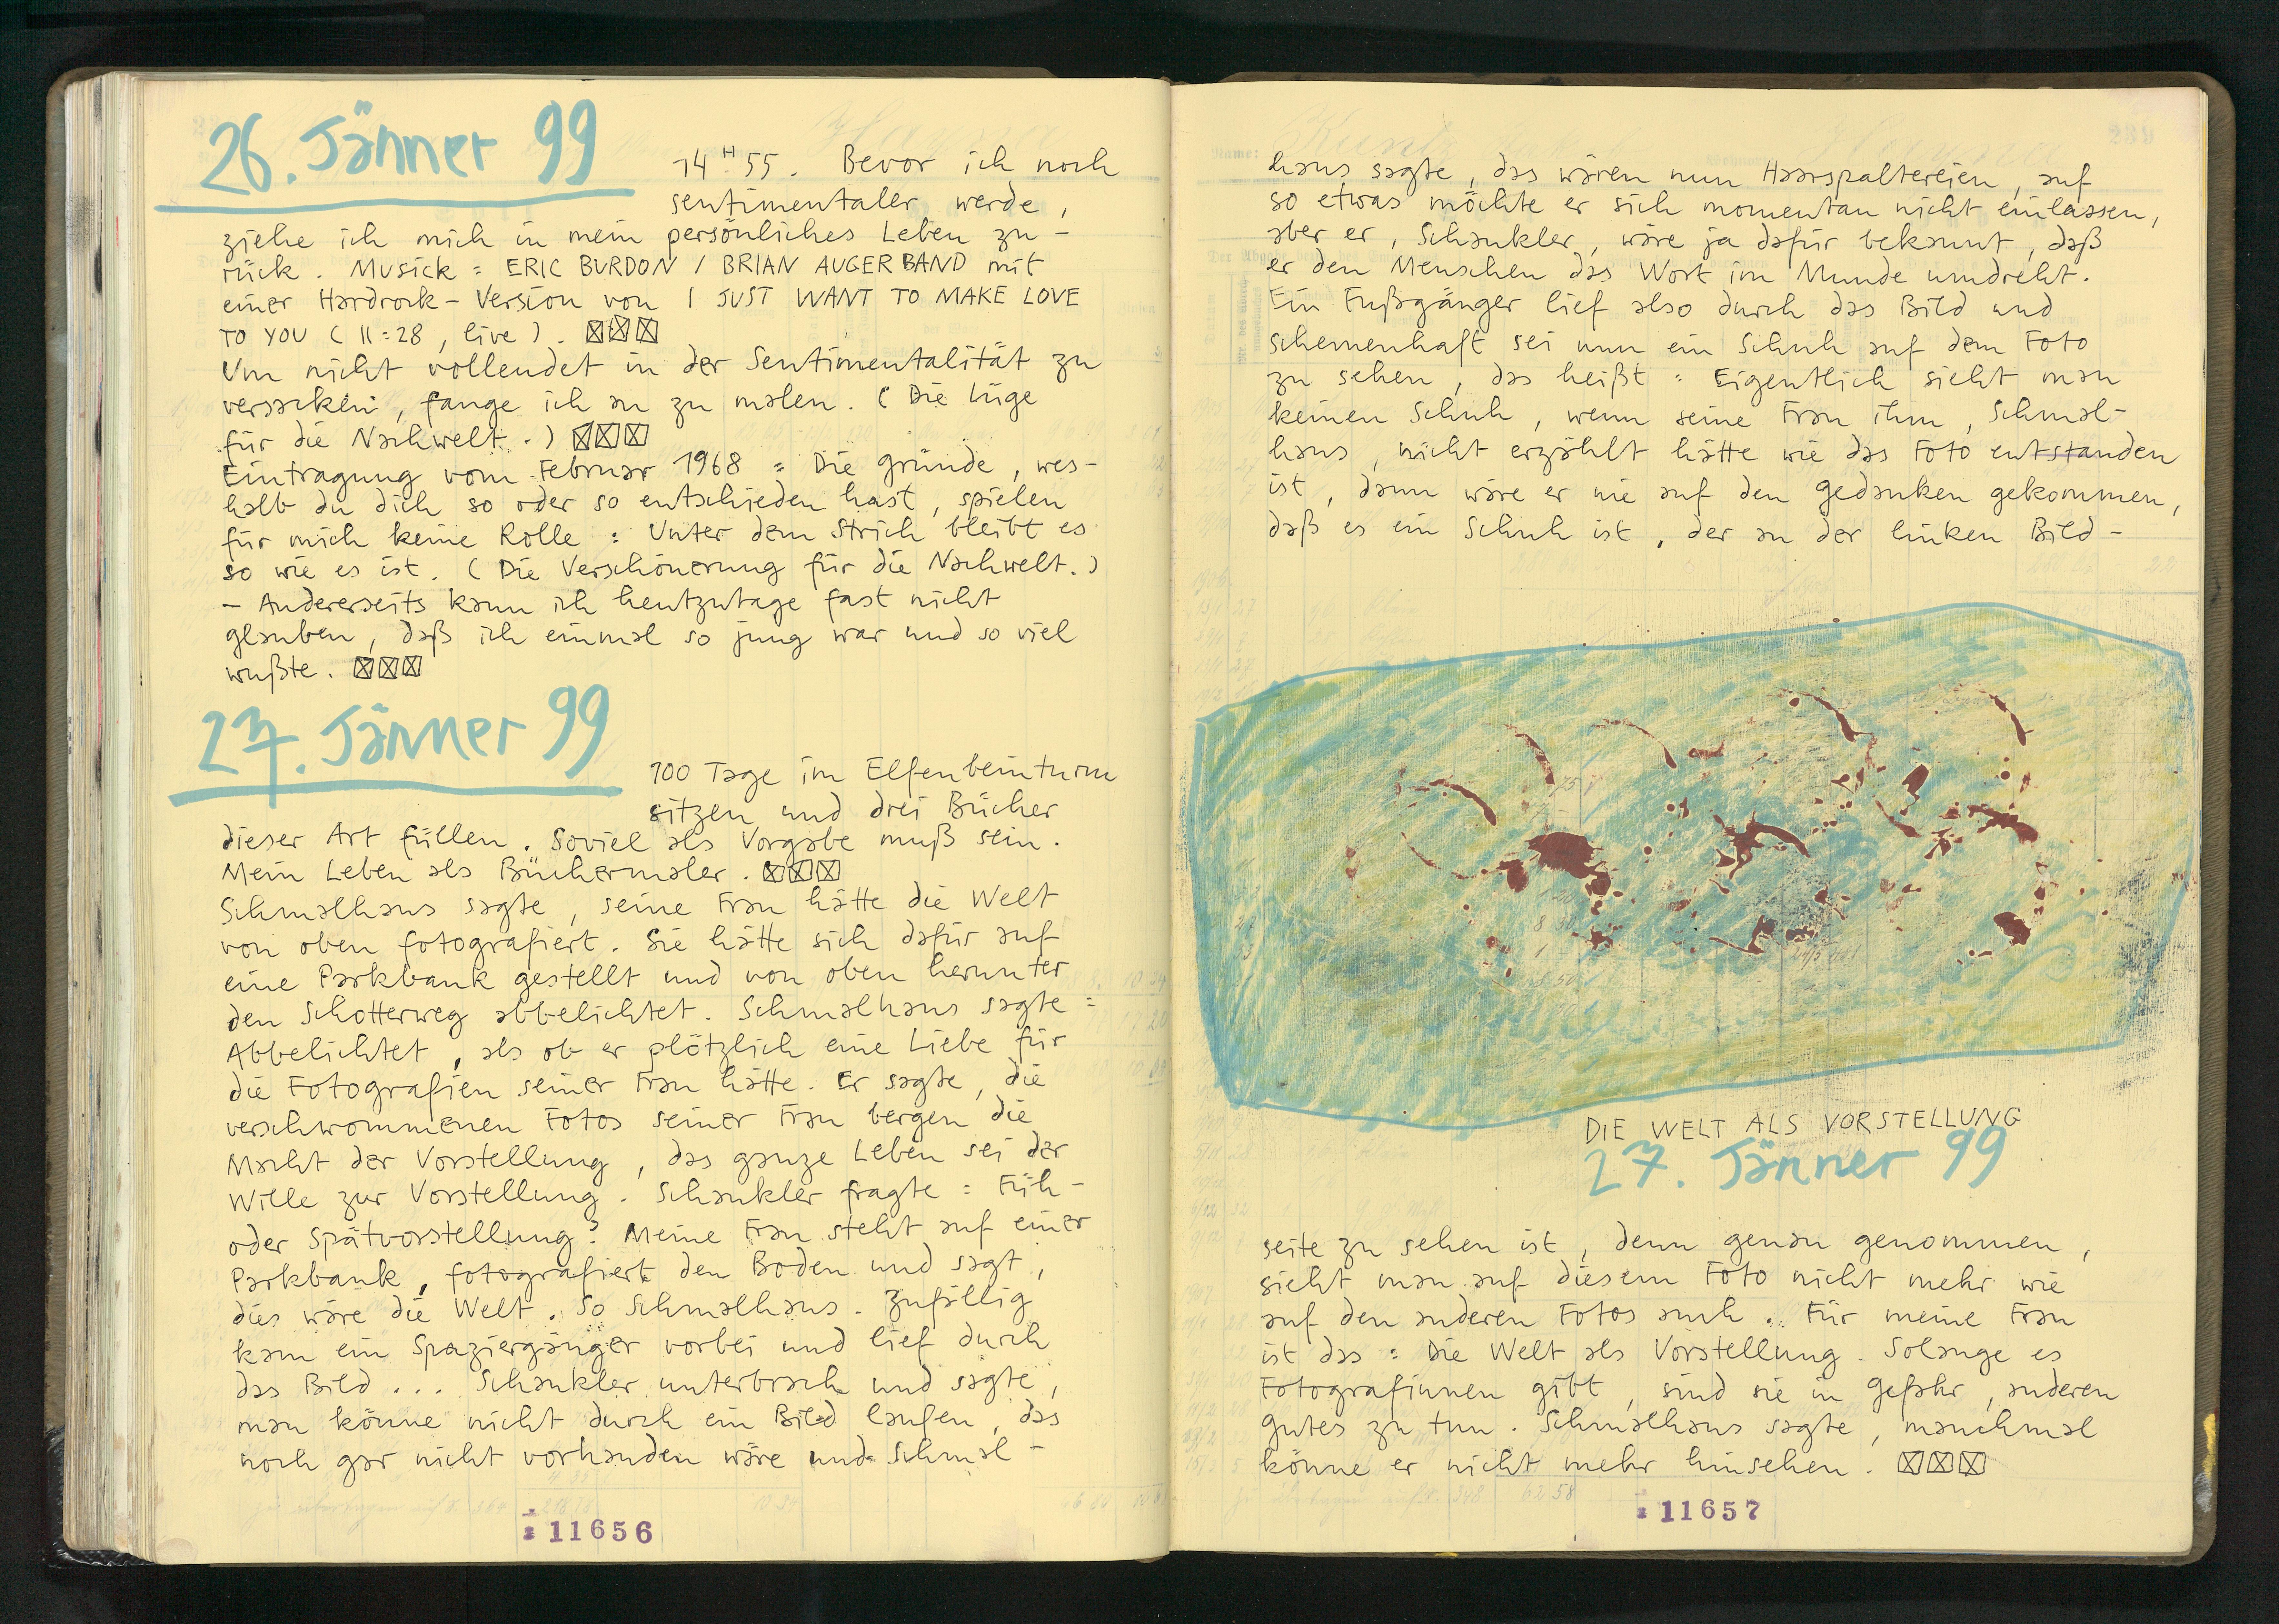 26. Jänner 99
14 H 55. Bevor ich noch
sentimentaler werde,
ziehe ich mich in mein persönliches Leben zu-
rück. Musick = ERIC BURDON / BRIAN AUGER BAND mit
einer Hardrock-Version von I JUST WANT TO MAKE LOVE
TO YOU (11:28, live). ☒☒☒
Um nicht vollendet in der Sentimentalität zu
versacken, fange ich an zu malen. (Die Lüge
für die Nachwelt.) ☒☒☒
Eintragung vom Februar 1968 = Die Gründe, wes-
halb du dich so oder so entschieden hast, spielen
für mich keine Rolle = Unter dem Strich bleibt es
so wie es ist. (Die Verschönerung für die Nachwelt.)
– Andererseits kann ich heutzutage fast nicht
glauben, daß ich einmal so jung war und so viel
wußte. ☒☒☒
27. Jänner 99
100 Tage im Elfenbeinturm
sitzen und drei Bücher
dieser Art füllen. Soviel als Vorgabe muß sein.
Mein Leben als Büchermaler. ☒☒☒
Schmalhaus sagte, seine Frau hätte die Welt
von oben fotografiert. Sie hätte sich dafür auf
eine Parkbank gestellt und von oben herunter
den Schotterweg abbelichtet. Schmalhaus sagte =
Abbelichtet, als ob er plötzlich eine Liebe für
die Fotografien seiner Frau hätte. Er sagte, die
verschwommenen Fotos seiner Frau bergen die
Macht der Vorstellung, das ganze Leben sei der
Wille zur Vorstellung. Schankler fragte = Früh-
oder Spätvorstellung? Meine Frau steht auf einer
Parkbank, fotografiert den Boden und sagt,
dies wäre die Welt. So Schmalhaus. Zufällig
kam ein Spaziergänger vorbei und lief durch
das Bild... Schankler unterbrach und sagte,
man könne nicht durch ein Bild laufen, das
noch gar nicht vorhanden wäre und Schmal-
11656
haus sagte, das wären nun Haarspaltereien, auf
so etwas möchte er sich momentan nicht einlassen,
aber er, Schankler, wäre ja dafür bekannt, daß
er den Menschen das Wort im Munde umdreht.
Ein Fußgänger lief also durch das Bild und
schemenhaft sei nun ein Schuh auf dem Foto
zu sehen, das heißt = Eigentlich sieht man
keinen Schuh, wenn seine Frau ihm, Schmal-
haus, nicht erzählt hätte wie das Foto entstanden
ist, dann wäre er nie auf den Gedanken gekommen,
daß es ein Schuh ist, der an der linken Bild-
DIE WELT ALS VORSTELLUNG
27. Jänner 99
seite zu sehen ist, denn genau genommen,
sieht man auf diesem Foto nicht mehr wie
auf den anderen Fotos auch. Für meine Frau
ist das = Die Welt als Vorstellung. Solange es
Fotografinnen gibt, sind sie in Gefahr, anderen
Gutes zu tun. Schmalhaus sagte, manchmal
könne er nicht mehr hinsehen. ☒☒☒
11657